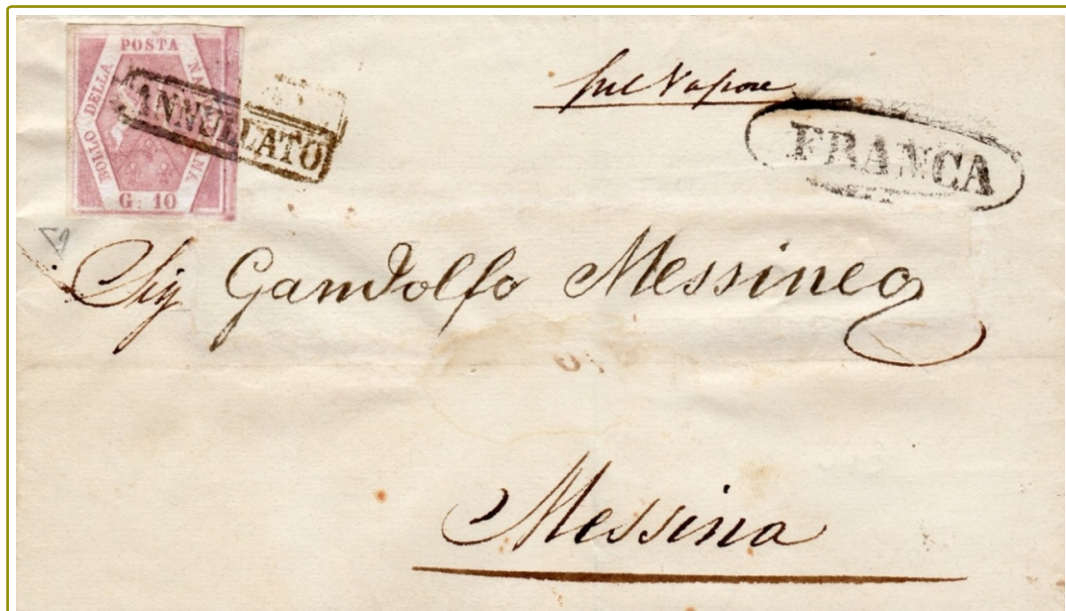 BOLLO DELLA POSTA NAPOLETANA
G. 10
ANNULLATO
Sul Vapore
FRANCA
Sig Gandolfo Messineo
Messina